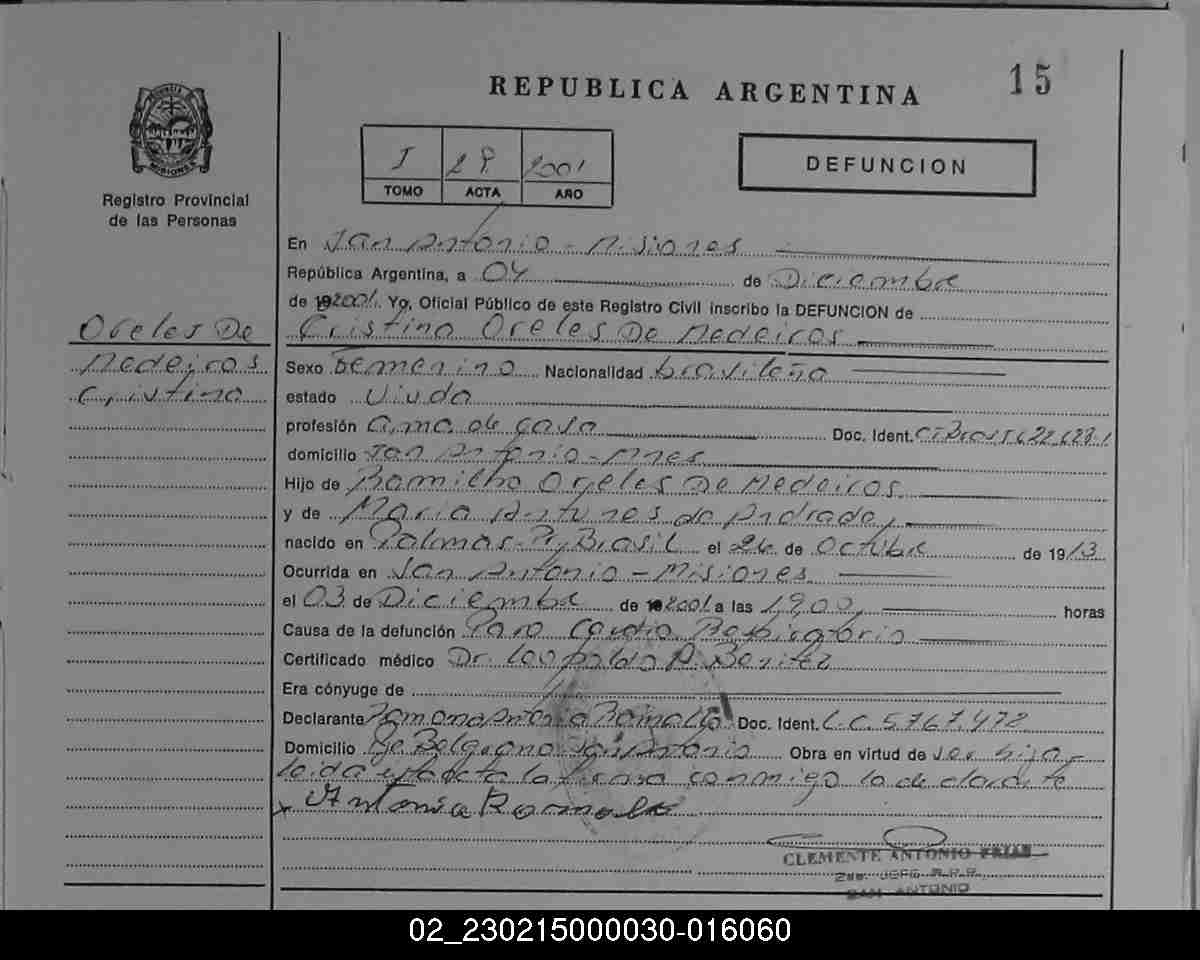 15
REPUBLICA ARGENTINA
PROVINCIA DE MISIONES
I 28 2001
TOMO ACTA AÑO
DEFUNCION
Registro Provincial
de las Personas
En San Antonio - Misiones
República Argentina, a 04 de Diciembre
de 2001. Yo, Oficial Público de este Registro Civil inscribo la DEFUNCION de
Cristina Oreles De Medeiros
Oreles De
Medeiros
Cristina
Sexo Femenino Nacionalidad brasileña
estado Viuda
profesión ama de casa Doc. Ident.
domicilio San Antonio - Mnes
Hijo de Oreles De Medeiros
y de Maria Antunes de Andrade,
nacido en Palmas - Pr, Brasil el 26 de Octubre de 1913
Ocurrida en San Antonio - Misiones
el 03 de Diciembre de 2001 a las 19,00, horas
Causa de la defunción Paro Cardio Respiratorio
Certificado médico Dr. Leopoldo A. Benitez
Era cónyuge de
Declarante Antonia Doc. Ident. L.C. 5.767.472
Domicilio Belgrano San Antonio Obra en virtud de ser hija
leida esta acta la firma conmigo la declarante
x Antonia
CLEMENTE ANTONIO
2do. JEFE R.P.P.
SAN ANTONIO
02_230215000030-016060